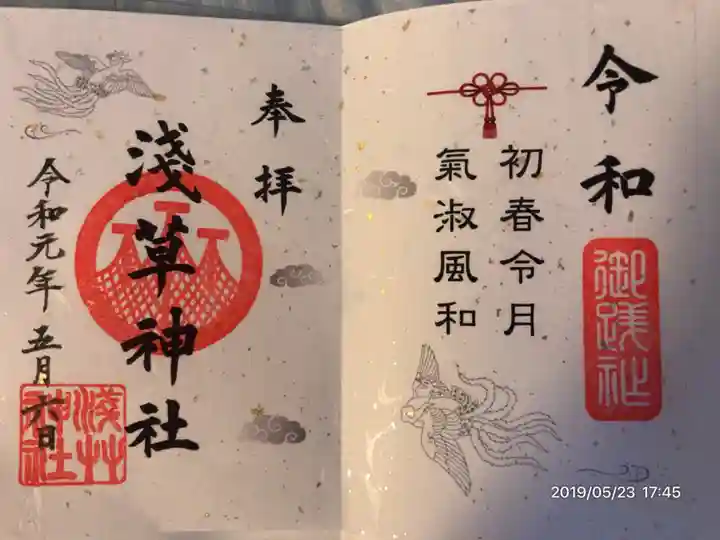 令和
初春令月
氣淑風和
御踐祚
奉拝
淺草神社
令和元年五月六日
淺草神社
2019/05/23 17:45